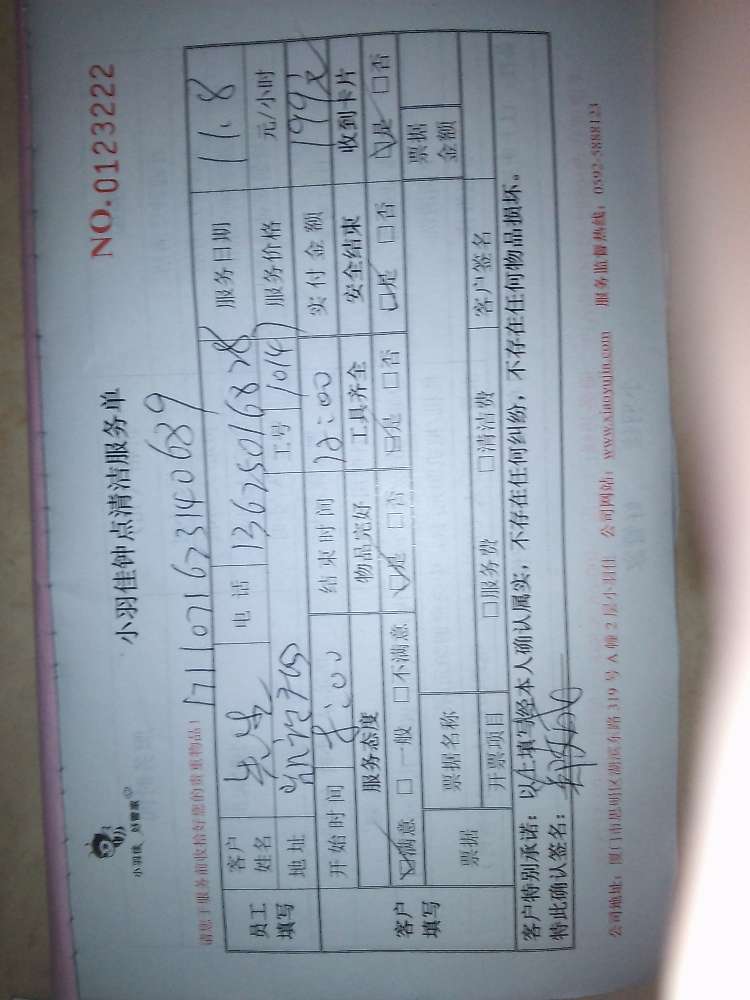 小羽佳 好管家
小羽佳钟点清洁服务单
NO.0123222
请您于服务前收拾好您的贵重物品!
1711071673140689
员工填写
客户姓名 先生 电话 13625016828 服务日期 11.8
地址 工号 10147 服务价格 元/小时
客户填写
开始时间 8:00 结束时间 12:00 实付金额 199元
服务态度 物品完好 工具齐全 安全结束 收到卡片
☑满意 □一般 □不满意 ☑是 □否 ☑是 □否 ☑是 □否 ☑是 □否
票据 票据名称 票据金额
开票项目 □服务费 □清洁费 客户签名
客户特别承诺:以上填写经本人确认属实,不存在任何纠纷,不存在任何物品损坏。
特此确认签名:
公司地址:厦门市思明区湖滨东路319号A幢2层小羽佳 公司网站:www.xiaoyujia.com 服务监督热线:0592-5888123